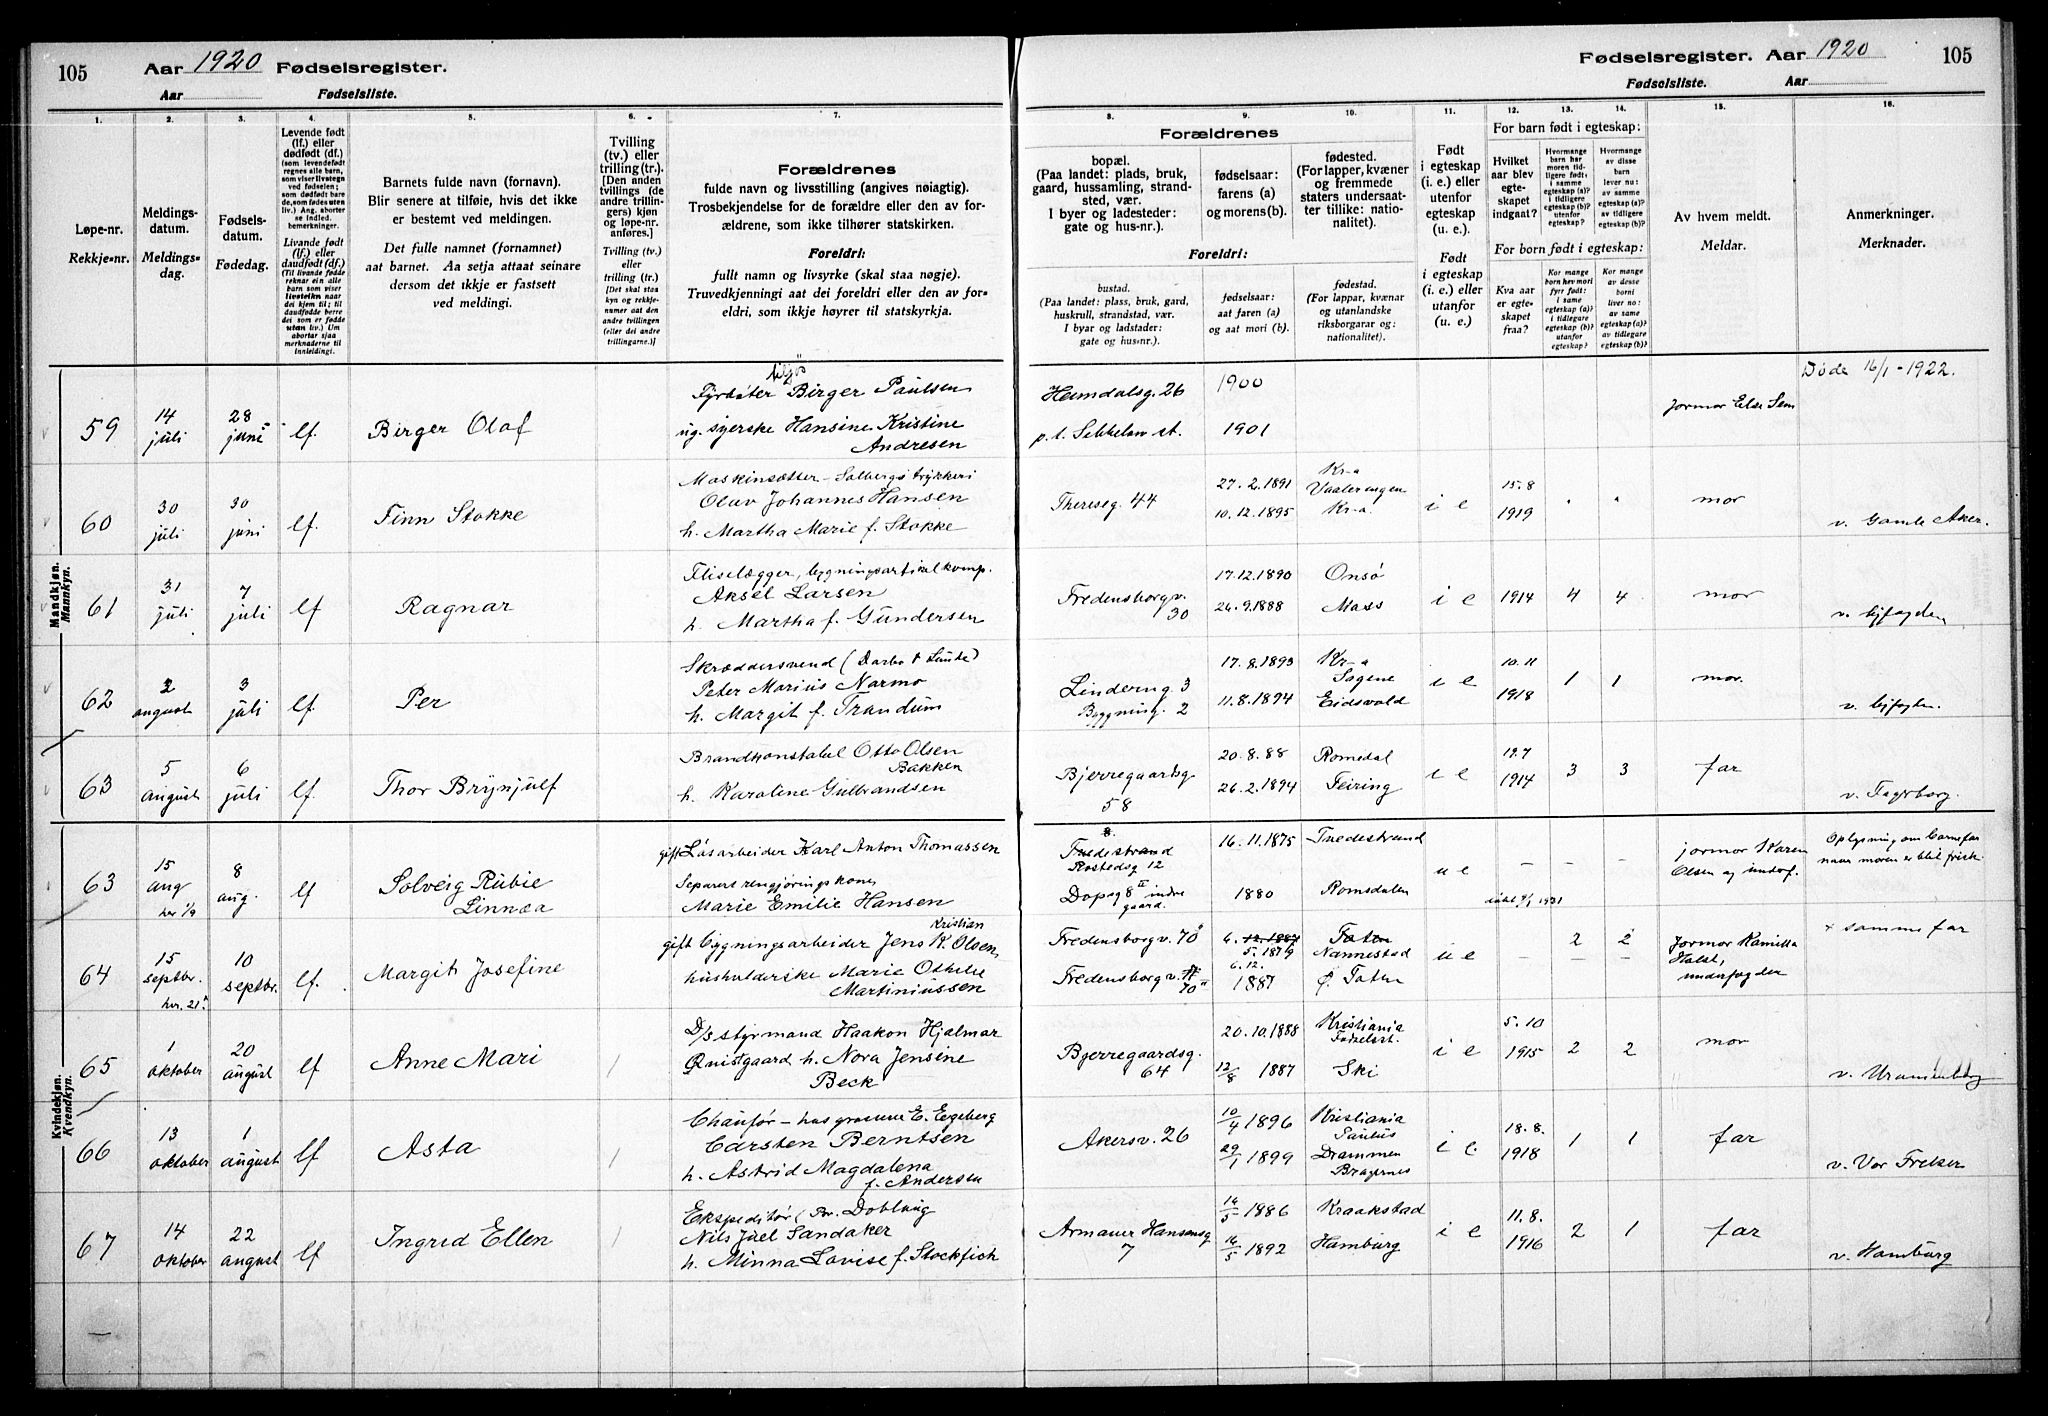 105
Aar 1920 Fødselsregister.
Aar Fødselsliste.
Fødselsregister. Aar 1920
105
Fødselsliste. Aar
1. 2. 3. 4. 5. 6. 7. 8. 9. 10. 11. 12. 13. 14. 15. 16.
Løpe-nr.
Rekkje-nr.
Meldings-
datum.
Meldings-
dag.
Fødsels-
datum.
Fødedag.
Levende født
(lf.) eller
dødfødt (df.)
(som levendefødt
regnes alle barn,
som viser livstegn
ved fødselen;
som dødfødt bare
de, som fødes uten
liv.) Ang. aborter
se indled.
bemerkninger.
Livande født
(lf.) eller
daudfødt (df.)
(Til livande fødde
reknar ein alle
barn som viser
livsteikn naar
dei kjem til; til
daudfødde berre
dei som er fødde
utan liv.) Um
abortar sjaa
merknaderne til
innleidingi.
Barnets fulde navn (fornavn).
Blir senere at tilføie, hvis det ikke
er bestemt ved meldingen.
Det fulle namnet (fornamnet)
aat barnet. Aa setja attaat seinare
dersom det ikkje er fastsett
ved meldingi.
Tvilling
(tv.) eller
trilling (tr.).
[Den anden
tvillings (de
andre trillin-
gers) kjøn
og løpe-nr.
anføres.]
Tvilling (tv.)
eller
trilling (tr.)
[Det skal staa
kyn og rekkje-
numer aat den
andre tvillingen
(eller dei andre
trillingarne.)]
Forældrenes
fulde navn og livsstilling (angives nøiagtig).
Trosbekjendelse for de forældre eller den av for-
ældrene, som ikke tilhører statskirken.
Foreldri:
fullt namn og livsyrke (skal staa nøgje).
Truvedkjenningi aat dei foreldri eller den av for-
eldri, som ikkje høyrer til statskyrkja.
Forældrenes
bopæl.
(Paa landet: plads, bruk,
gaard, hussamling, strand-
sted, vær.
I byer og ladesteder:
gate og hus-nr.).
fødselsaar:
farens (a)
og morens (b).
fødested.
(For lapper, kvæner
og fremmede
staters undersaat-
ter tillike: natio-
nalitet).
Foreldri:
bustad.
(Paa landet: plass, bruk, gard,
huskrull, strandstad, vær.
I byar og ladstader:
gate og hus-nr.).
fødselsaar:
aat faren (a)
og aat mori (b).
fødestad.
(For lappar, kvænar
og utanlandske
riksborgarar og:
nationalitet).
Født
i egteskap
(i. e.) eller
utenfor
egteskap
(u. e.)
Født
i egteskap
(i. e.) eller
utanfor
(u. e.)
For barn født i egteskap:
Hvilket
aar blev
egte-
skapet
indgaat?
Hvormange
barn har
moren tid-
ligere født:
i samme
egteskap (a)?
i tidligere
egteskap (b)?
utenfor
egteskap?
Hvormange
av disse
barn
lever nu:
av samme
egteskap (a)?
av tidligere
egteskap (b)?
For born født i egteskap:
Kva aar
er egte-
skapet
fraa?
Kor mange
born hev mori
fyrr født:
i same
egteskap (a)?
i tidlegare
egteskap (b)?
utanfor
egteskap?
Kor mange
av desse
borni
liver no:
av same
egteskap (a)?
av tidlegare
egteskap (b)?
Av hvem meldt.
Meldar.
Anmerkninger.
Merknader.
Mandkjøn.
Mannkyn.
59 14 juli 28 juni lf. Birger Olaf
Fyrbøter Birger Paulsen
ug. syerske Hansine Kristine
Andresen
Heimdalsg. 26 1900
p. t. st. 1901
jormor Else Sem
Døde 16/1 - 1922.
60 30 juli 30 juni lf. Finn Stokke
Maskinsætter - Solbergs trykkeri
Oluv Johannes Hansen
h. Martha Marie f. Stokke
Thereseg. 44
27. 2. 1891 Kr-a Vaalerengen
10. 12. 1895 Kr-a.
i e 15.8 1919 " " mor
v. Gamle Aker.
61 31 juli 7 juli lf Ragnar
Fliselægger, bygningsartikelkomp.
Aksel Larsen
h. Martha f. Gundersen
Fredensborgv. 30
17.12.1890 Onsø
24.9.1888 Moss
i e 1914 4 4 mor
v. byfogden
62 2 august 3 juli lf. Per
Skræddersvend (Dorbo &
Peter Marius Narmo
h. Margit f. Trandum
Linderng. 3
Bygning. 2
17.8.1893 Kr-a Sagene
11.8.1894 Eidsvold
i e 10.11 1918 1 1 mor.
v. byfogden.
63 5 august 6 juli lf. Thor Brynjulf
Brandkonstabel Otto Olsen
Bakken
h. Karoline Gulbrandsen
Bjerregaardsg 58
20.8.88 Romedal
26.2.1894 Feiring
i e 19.7 1914 3 3 far
v. Fagerborg.
Kvindekjøn.
Kvendkyn.
63 15 aug her 1/9 8 aug. lf Solveig Rubie
Linnea
gift Løsarbeider Karl Anton Thomassen
Separert rengjøringskone
Marie Emilie Hansen
Tvedestrand
12
Dopsg 8 II indre
gaard.
16.11.1875 Tvedestrand
1880 Romsdalen
u e – – –
jormor Karen
Olsen og
Oplysning om barnefar
naar moren er blit frisk.
64 15 septbr. her. 21/9 10 septbr. lf. Margit Josefine
gift bygningsarbeider Jens Kristian K. Olsen,
husholderske Marie Othelie
Martiniussen
Fredensborgv. 70 II
Fredensborgv. 70 II
6. 12.1887 Toten
5. 1879 Nannestad
6.12. 1887 Ø. Toten
u e – 2 2
– –
Jormor Kamilla
Holst,
underfogden
+ samme far
65 1 oktober 20 august lf Anne Mari
D/s styrmand Haakon Hjalmar
Qvistgaard h. Nora Jensine
Beck
Bjerregaardsg. 64
20.10.1888 Kristiania Fødselsst.
12/8 1887 Ski
i e 5.10 1915 2 2 mor
v. Uranienborg
66 13 oktober 1 august lf Asta
Chaufør - hos grosserer E. Egeberg
Carsten Berntsen
h. Astrid Magdalena
f. Andersen
Akersv. 26
10/4 1896 Kristiania Paulus
29/1 1899 Drammen Bragernes
i e. 18.8. 1918 1 1 far
v. Vor Frelser
67 14 oktober 22 august lf Ingrid Ellen
Ekspeditør (Br. Dobloug
Nils Juel Sandaker
h. Minna Lovise f. Stockfich
Armauer Hansensg 7
14/5 1886 Kraakstad
14/5 1892 Hamburg
i e 11.8. 1916 2 1 far
v. Hamburg